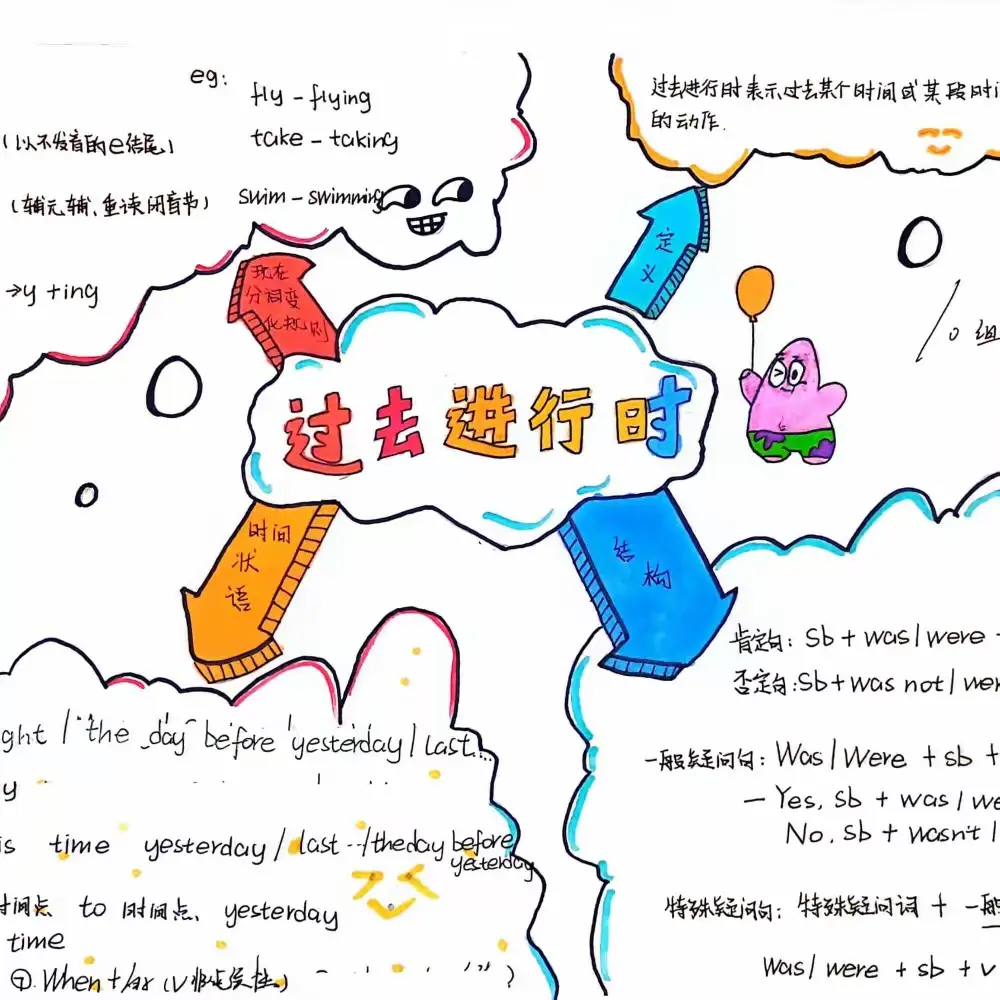 eg:
fly - flying
(以不发音的e结尾)
take - taking
(辅元辅、重读闭音节)
swim - swimming
→y +ing
过去进行时表示过去某个时间或某段时间
的动作.
定义
现在
分词变
化规则
组
过去进行时
时间
状
语
结
构
肯定句: Sb + was/were +
否定句: Sb + was not/were
一般疑问句: Was/Were + sb +
— Yes, sb + was/we
No, sb + wasn't/
特殊疑问句: 特殊疑问词 + 一般
Was/were + sb + v
ght / the day before yesterday / last...
y
is time yesterday / last --/the day before
yesterday
时间点 to 时间点, yesterday
time
When